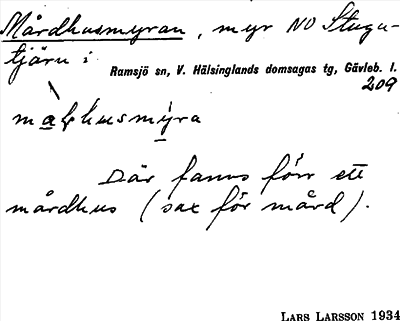 Mårdhusmyran, myr NO Stugu-
tjärn i
Ramsjö sn, V. Hälsinglands domsagas tg, Gävleb. l.
209
Där fanns förr ett
mårdhus (sax för mård).
LARS LARSSON 1934